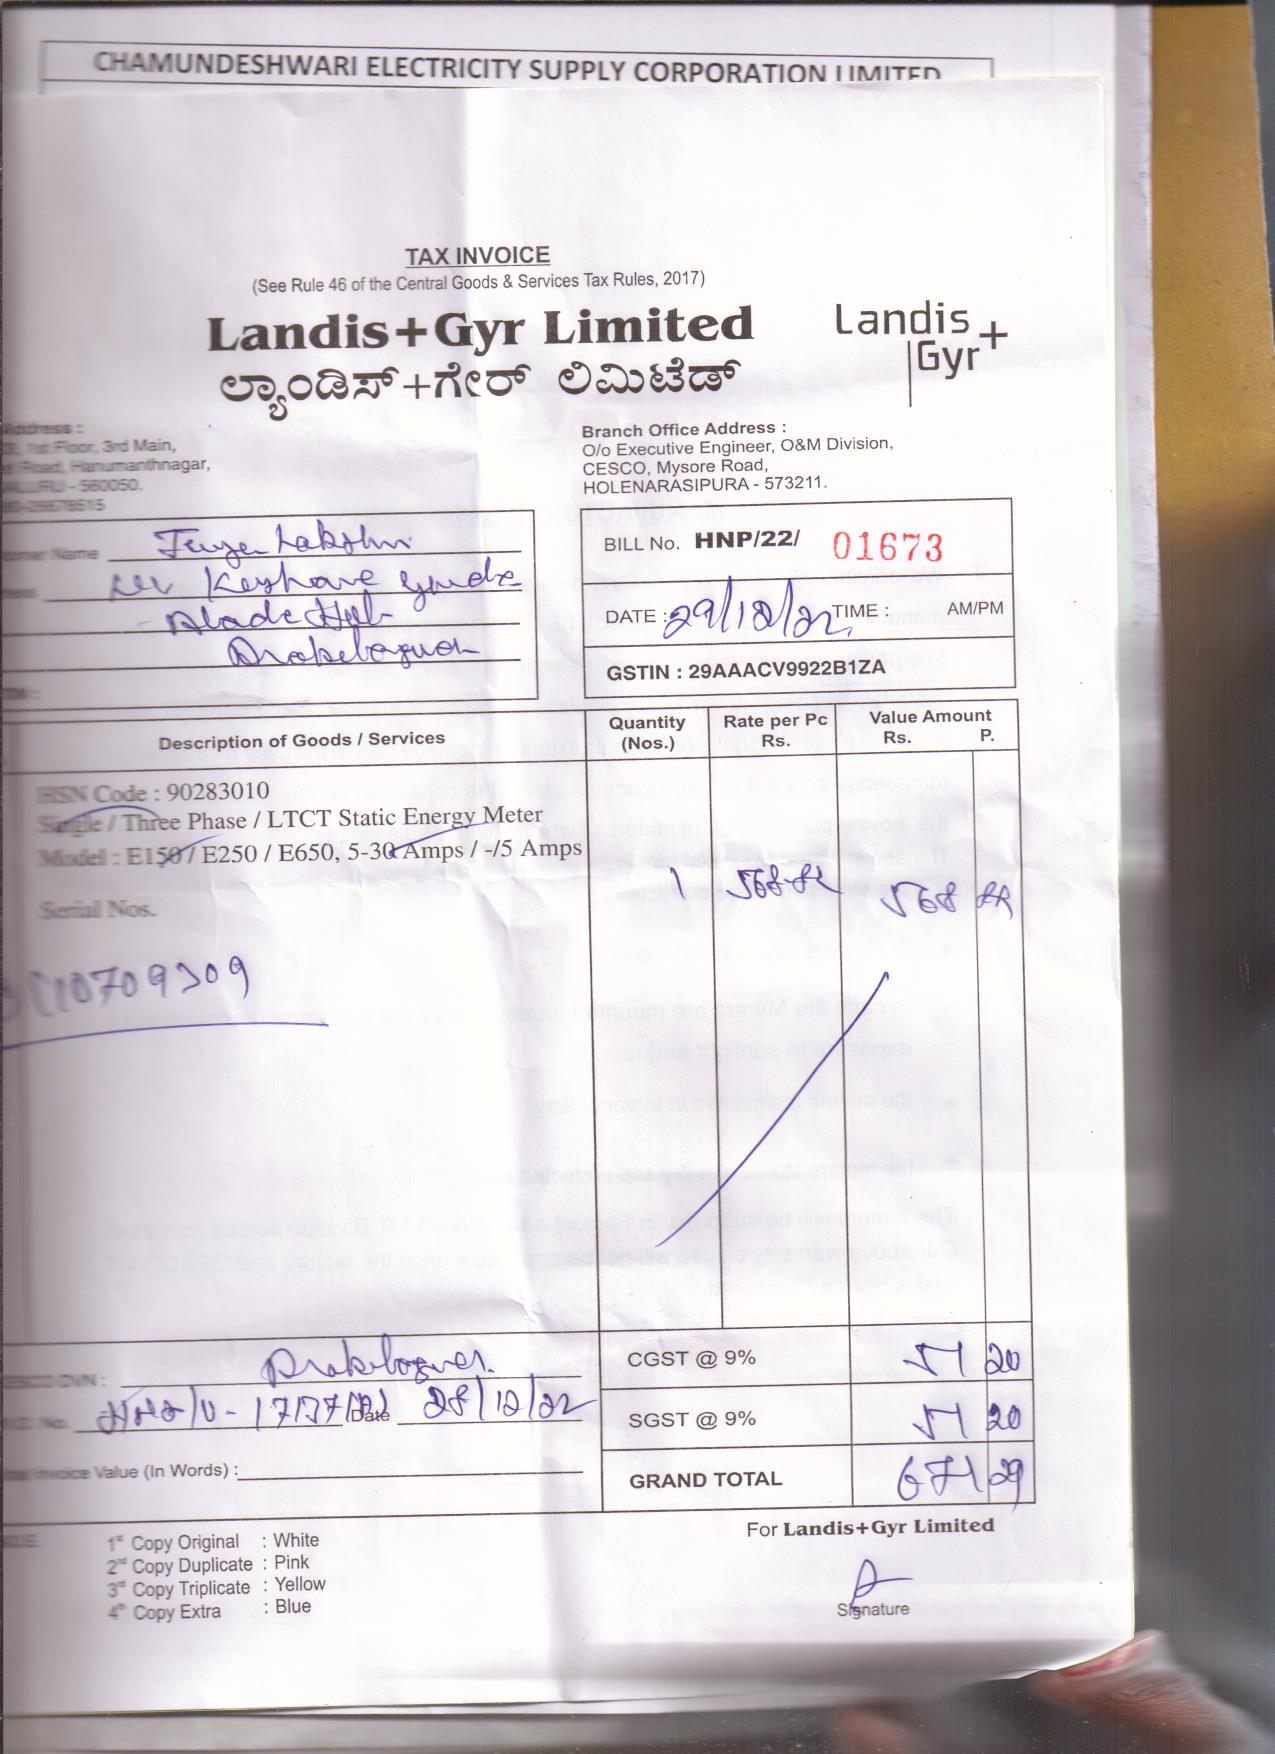 CHAMUNDESHWARI ELECTRICITY SUPPLY CORPORATION LIMITED
TAX INVOICE
(See Rule 46 of the Central Goods & Services Tax Rules, 2017)
Landis+Gyr Limited
ಲ್ಯಾಂಡಿಸ್+ಗೇರ್ ಲಿಮಿಟೆಡ್
Landis
Gyr+
Address :
1st Floor, 3rd Main,
Road, Hanumanthnagar,
- 560050.
Branch Office Address :
O/o Executive Engineer, O&M Division,
CESCO, Mysore Road,
HOLENARASIPURA - 573211.
Name
BILL No. HNP/22/ 01673
DATE : 29/12/22 TIME : AM/PM
GSTIN : 29AAACV9922B1ZA
Description of Goods / Services
Quantity (Nos.)
Rate per Pc Rs.
Value Amount Rs. P.
HSN Code : 90283010
Single / Three Phase / LTCT Static Energy Meter
Model : E150 / E250 / E650, 5-30 Amps / -/5 Amps
1 568.82 568 82
Serial Nos.
CGST @ 9% 51 20
DVN :
No. Date 28/12/22
SGST @ 9% 51 20
Invoice Value (In Words) :
GRAND TOTAL 671 29
1st Copy Original : White
2nd Copy Duplicate : Pink
3rd Copy Triplicate : Yellow
4th Copy Extra : Blue
For Landis+Gyr Limited
Signature